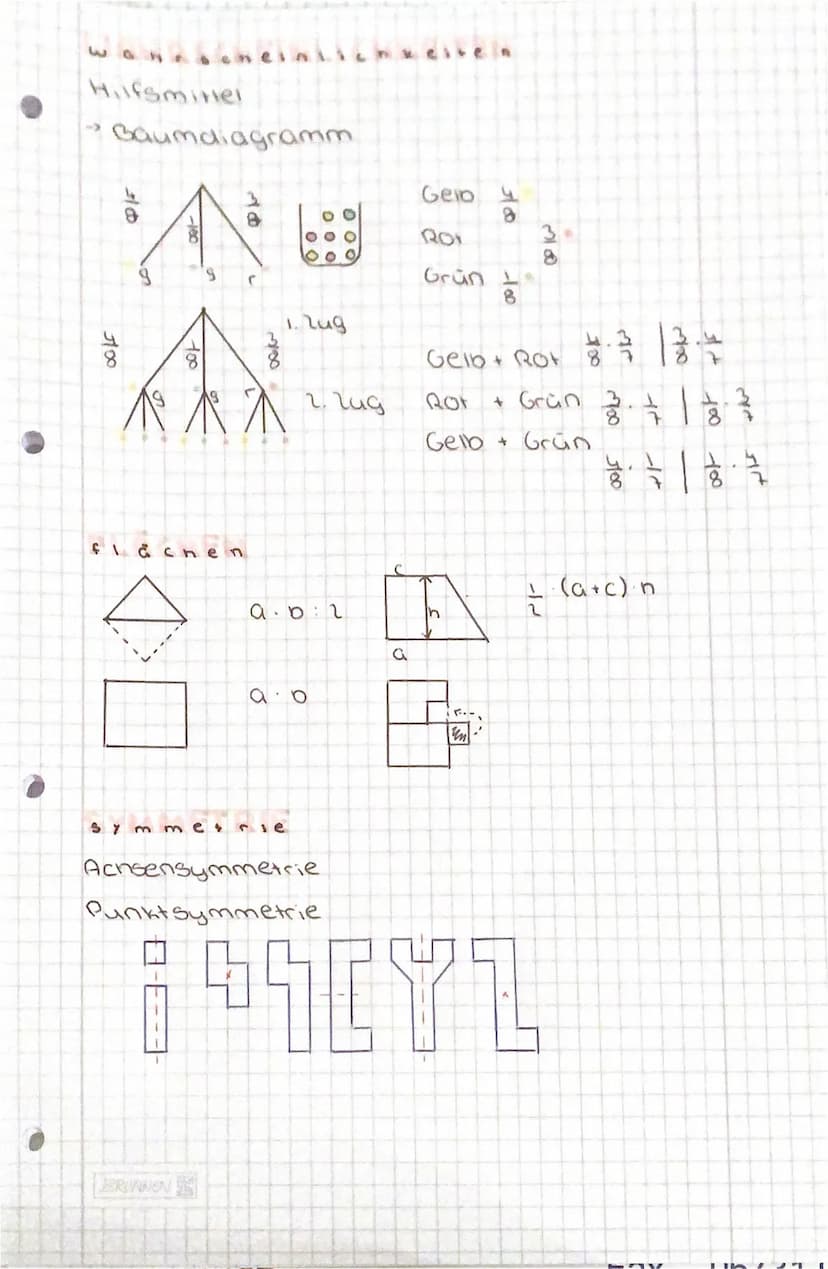 Wahrscheinlichkeiten
Hilfsmittel
→ Baumdiagramm
4/8 1/8 3/8
g g r
Gelb 4/8
Rot 3/8
Grün 1/8
4/8 1/8 3/8 1. Zug
g g r 2. Zug
Gelb + Rot 4/8 · 3/7 | 3/8 · 4/7
Rot + Grün 3/8 · 1/7 | 1/8 · 3/7
Gelb + Grün
4/8 · 1/7 | 1/8 · 4/7
FLÄCHEN
flächen
a · b : 2
c
h
a
1/2 · (a+c) · h
a · b
SYMMETRIE
symmetrie
Achsensymmetrie
Punktsymmetrie
BRUNNEN